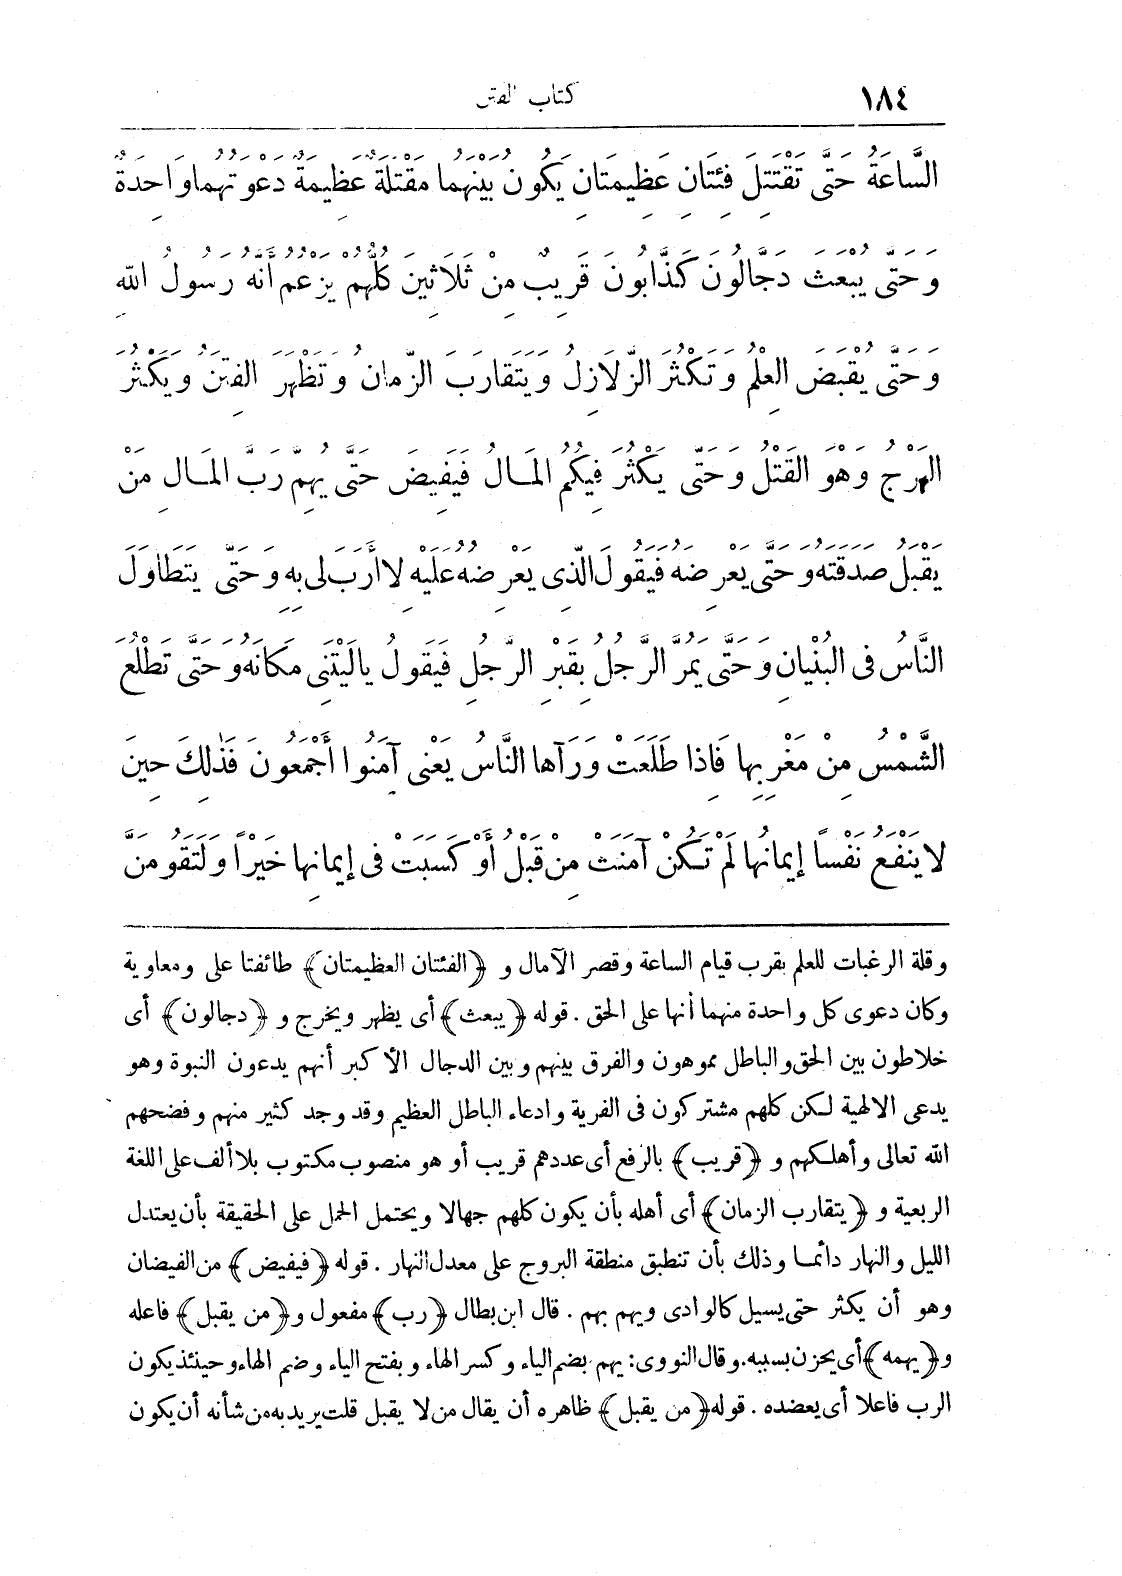 ١٨٤ كتاب الفتن
السَّاعَةُ حَتَّى تَقْتَتِلَ فِئَتَانِ عَظِيمَتَانِ يَكُونُ بَيْنَهُمَا مَقْتَلَةٌ عَظِيمَةٌ دَعْوَتُهُمَا وَاحِدَةٌ
وَحَتَّى يُبْعَثَ دَجَّالُونَ كَذَّابُونَ قَرِيبٌ مِنْ ثَلَاثِينَ كُلُّهُمْ يَزْعُمُ أَنَّهُ رَسُولُ اللهِ
وَحَتَّى يُقْبَضَ العِلْمُ وَتَكْثُرَ الزَّلَازِلُ وَيَتَقَارَبَ الزَّمَانُ وَتَظْهَرَ الفِتَنُ وَيَكْثُرَ
الهَرْجُ وَهْوَ القَتْلُ وَحَتَّى يَكْثُرَ فِيكُمُ المَالُ فَيَفِيضَ حَتَّى يُهِمَّ رَبَّ المَالِ مَنْ
يَقْبَلُ صَدَقَتَهُ وَحَتَّى يَعْرِضَهُ فَيَقُولَ الَّذِى يَعْرِضُهُ عَلَيْهِ لَا أَرَبَ لِى بِهِ وَحَتَّى يَتَطَاوَلَ
النَّاسُ فِى البُنْيَانِ وَحَتَّى يَمُرَّ الرَّجُلُ بِقَبْرِ الرَّجُلِ فَيَقُولُ يَالَيْتَنِى مَكَانَهُ وَحَتَّى تَطْلُعَ
الشَّمْسُ مِنْ مَغْرِبِهَا فَإِذَا طَلَعَتْ وَرَآهَا النَّاسُ يَعْنِى آمَنُوا أَجْمَعُونَ فَذٰلِكَ حِينَ
لَا يَنْفَعُ نَفْسًا إِيمَانُهَا لَمْ تَكُنْ آمَنَتْ مِنْ قَبْلُ أَوْ كَسَبَتْ فِى إِيمَانِهَا خَيْرًا وَلَتَقُومَنَّ
وقلة الرغبات للعلم بقرب قيام الساعة وقصر الآمال و ﴿الفئتان العظيمتان﴾ طائفتا على ومعاوية
وكان دعوى كل واحدة منهما أنها على الحق . قوله ﴿يبعث﴾ أى يظهر ويخرج و ﴿دجالون﴾ أى
خلاطون بين الحق والباطل مموهون والفرق بينهم وبين الدجال الأكبر أنهم يدعون النبوة وهو
يدعى الالهية لكن كلهم مشتركون فى الفرية وادعاء الباطل العظيم وقد وجد كثير منهم وفضحهم
الله تعالى وأهلكهم و ﴿قريب﴾ بالرفع أى عددهم قريب أو هو منصوب مكتوب بلا ألف على اللغة
الربعية و ﴿يتقارب الزمان﴾ أى أهله بأن يكون كلهم جهالا ويحتمل الحمل على الحقيقة بأن يعتدل
الليل والنهار دائما وذلك بأن تنطبق منطقة البروج على معدل النهار . قوله ﴿فيفيض﴾ من الفيضان
وهو أن يكثر حتى يسيل كالوادى ويهم بهم . قال ابن بطال ﴿رب﴾ مفعول و ﴿من يقبل﴾ فاعله
و ﴿يهمه﴾ أى يحزن بسببه. وقال النووى: يهم بضم الياء وكسر الهاء وبفتح الياء وضم الهاء وحينئذ يكون
الرب فاعلا أى يعضده . قوله ﴿من يقبل﴾ ظاهره أن يقال من لا يقبل قلت يريد به من شأنه أن يكون